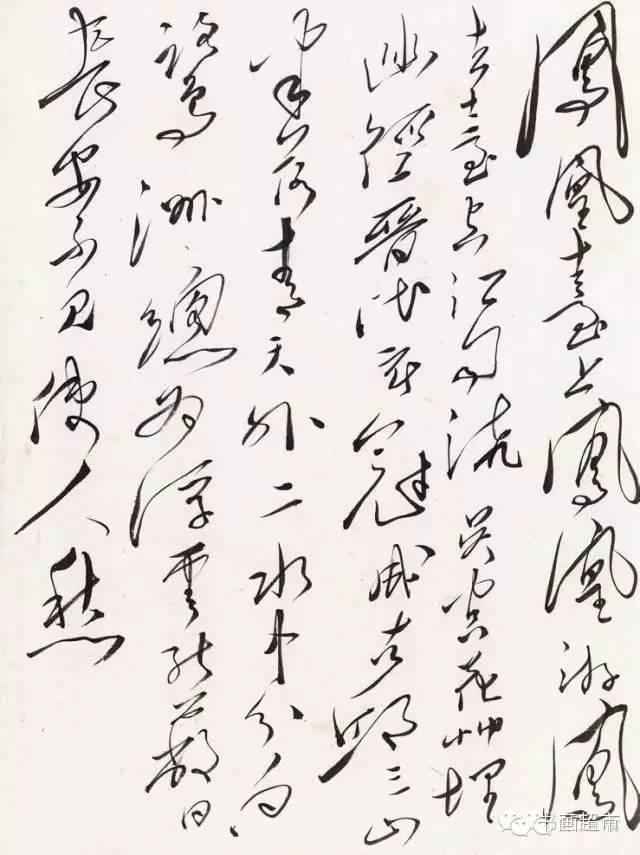 鳳凰臺上鳳凰游鳳
去臺空江自流吳宮花艸埋
幽徑晉代衣冠成古邱三山
半落青天外二水中分白
鷺洲總为浮雲能蔽日
長安不見使人愁
书画超市